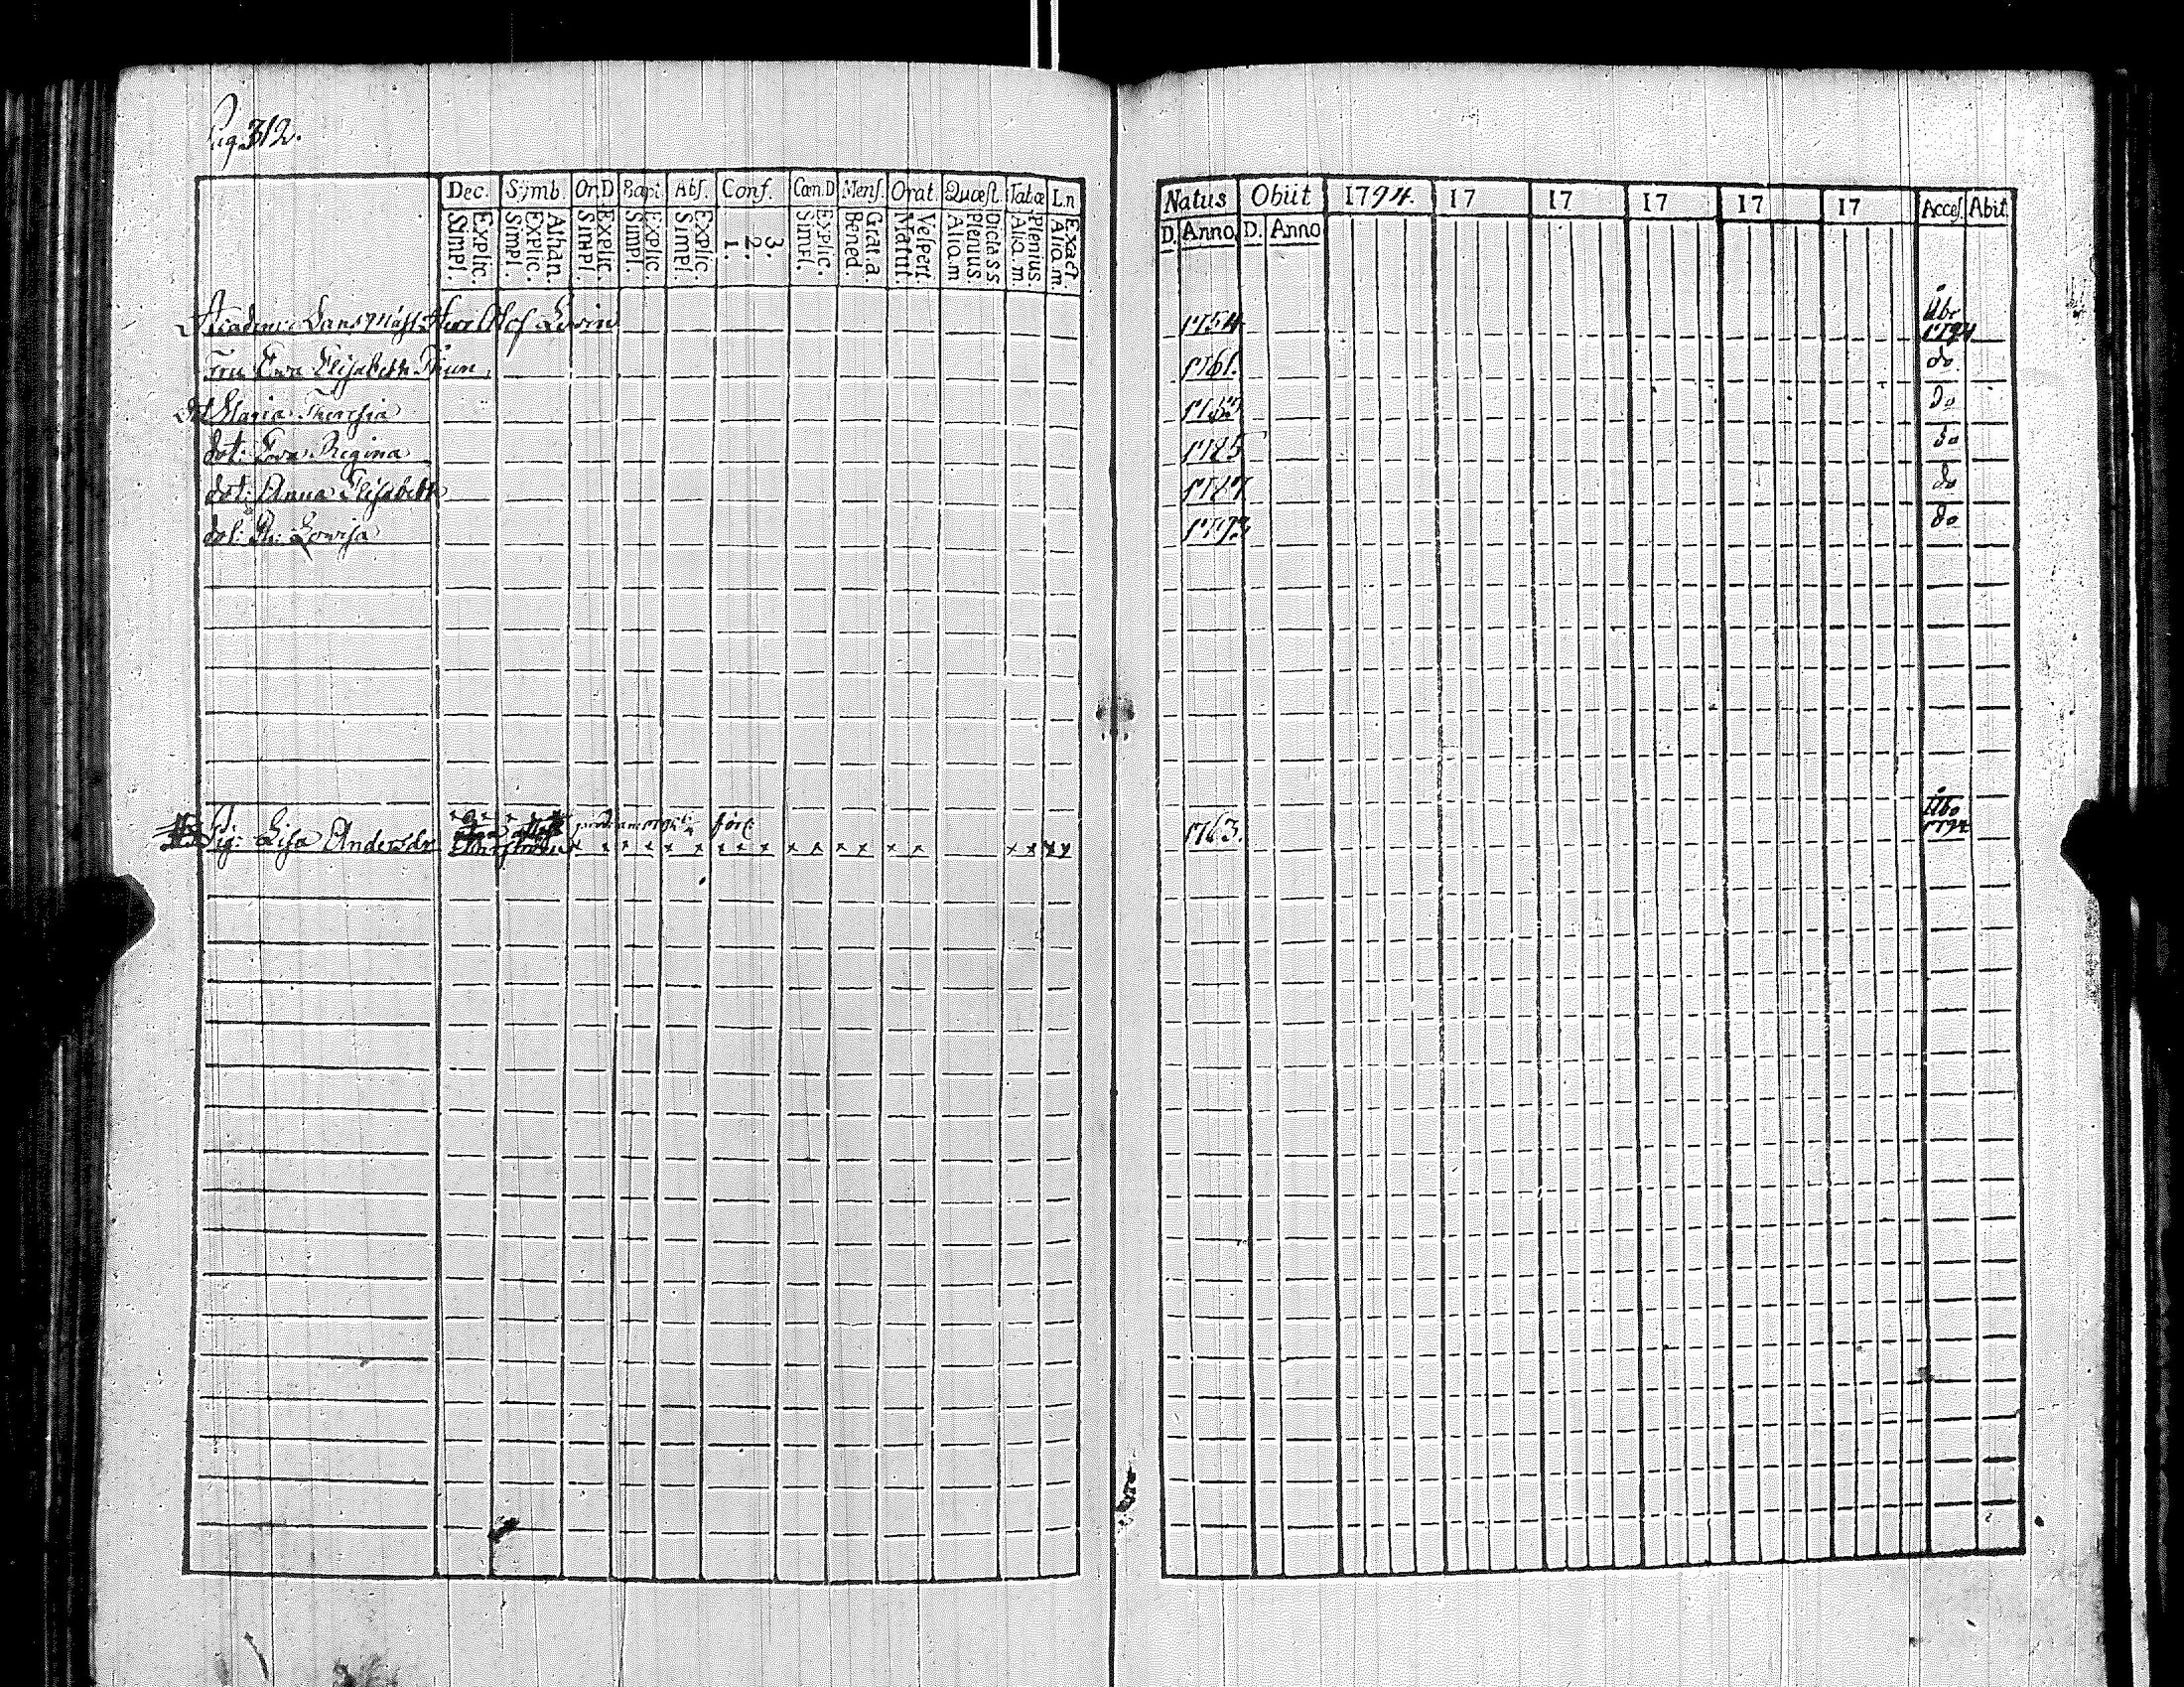 Pag. 312.
Dec. Symb. Or.D Bapt. Abſ. Conf. Cœn.D Menſ. Orat. Quæſt. Tabæ L.n
Explic. Simpl. Athan. Explic. Simpl. Explic. Simpl. Explic. Simpl. Explic. Simpl. 3. 2. 1. Explic. Simpl. Grat. a. Bened. Veſpert. Matut. Dicta SS. Plenius Aliq. m Plenius. Aliq. m. Exact. Aliq. m.
Natus Obiit 1794. 17 17 17 17 17 Acceſ. Abit.
D. Anno. D. Anno
Herr Olof 1754 Åbo 1794
Fru Eva Elisabeth 1761. do
dot. Maria Theresia do
dot: Eva Regina 1785 do
dot: Anna Elisabeth 1787 do
dot: Lovisa 1793 do
Pig: Lisa Andersdr x x x x x x x x x x x x x x x x 1763. Åbo 1794